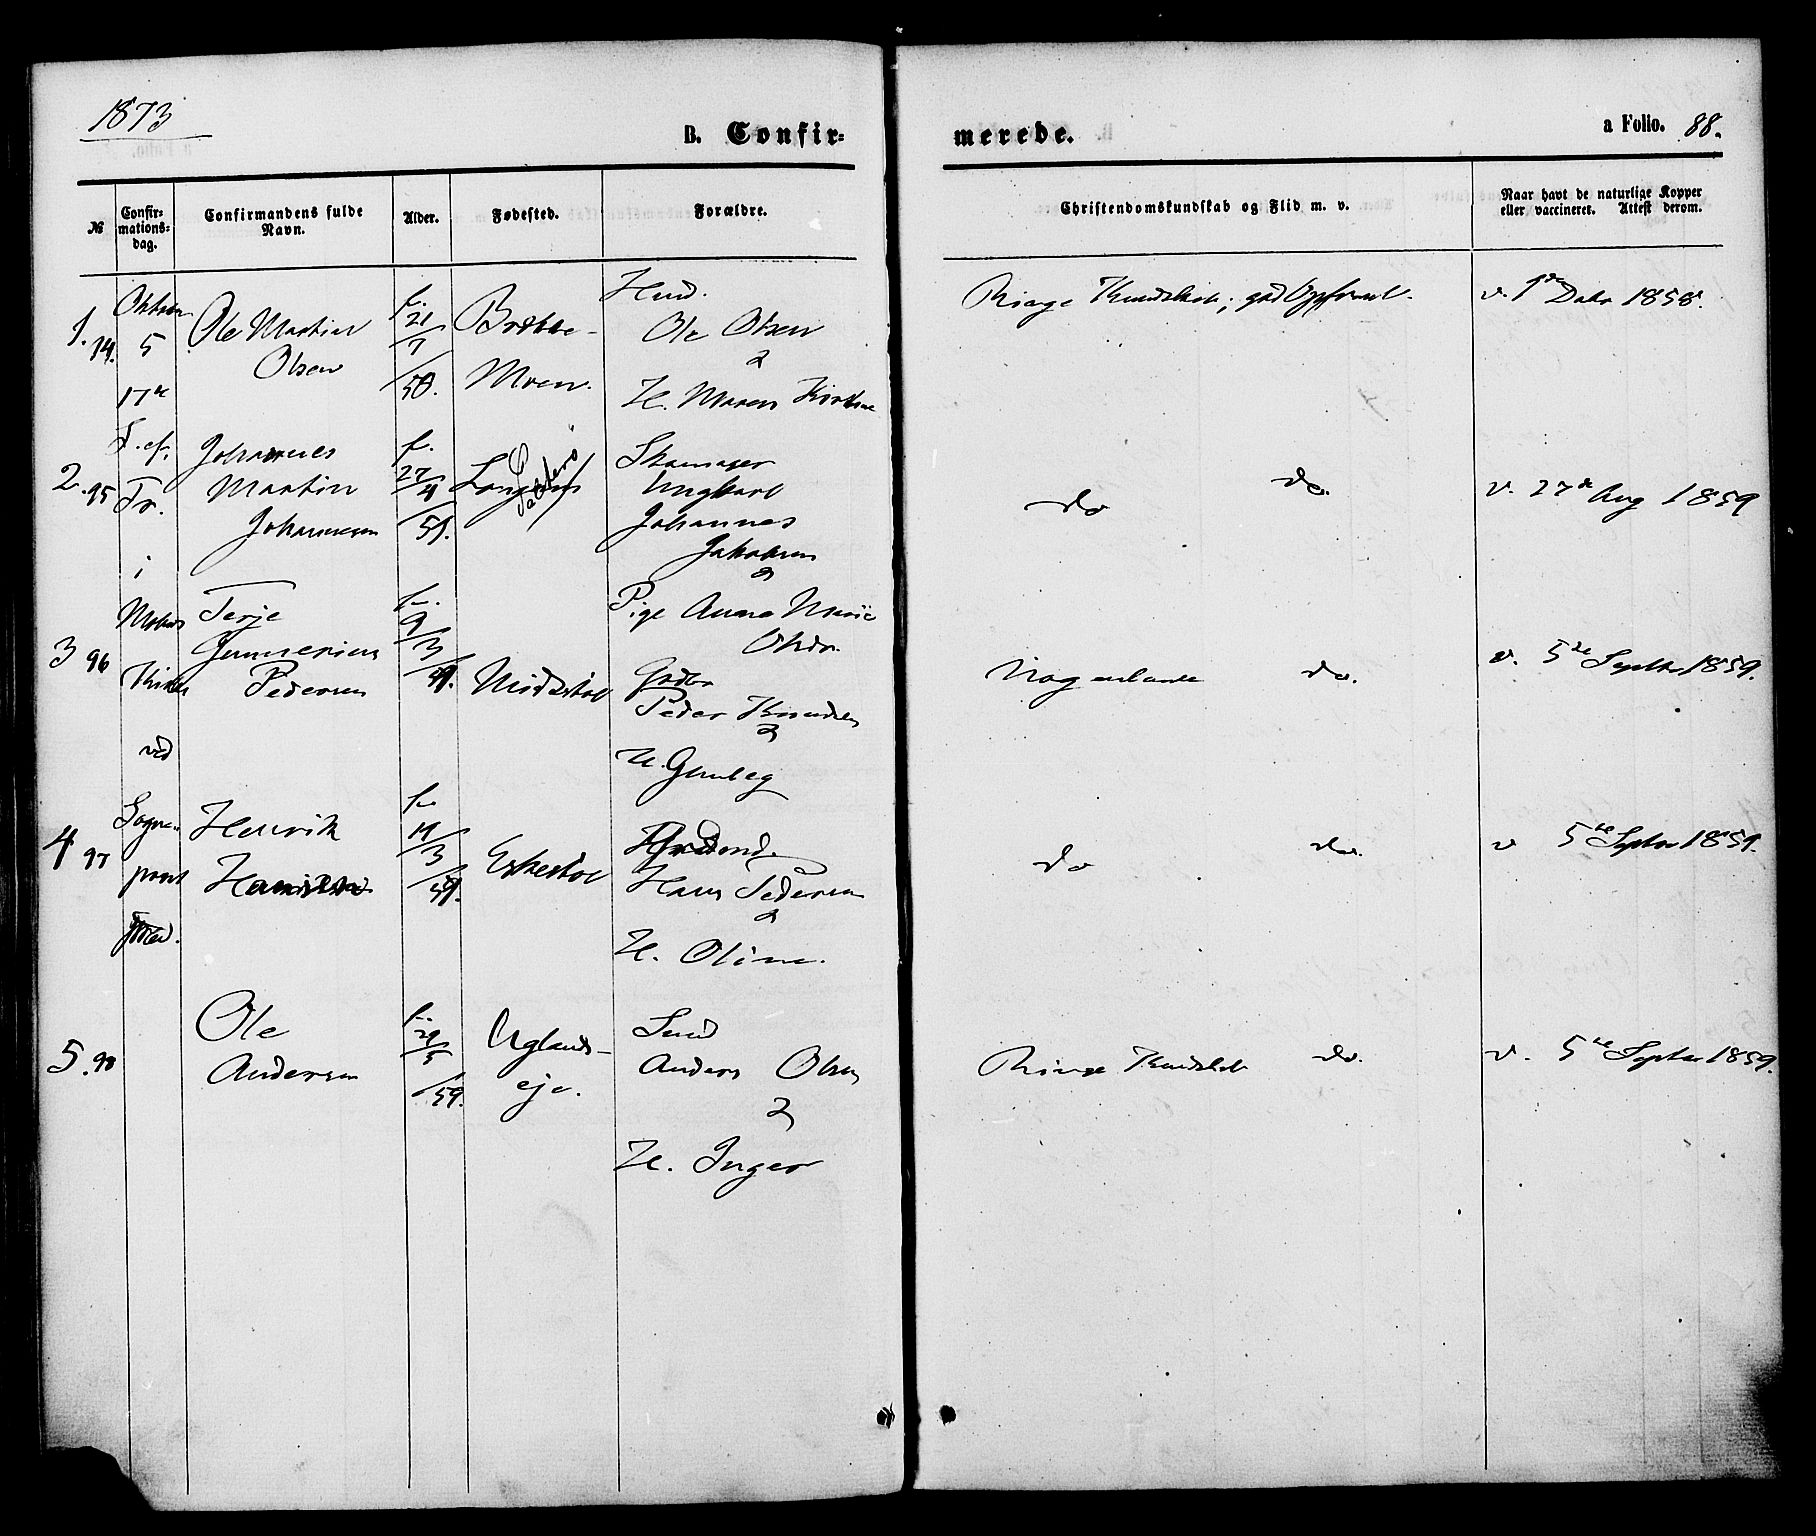 1873
B. Confir-
merede.
a Folio. 88.
№
Confir-
mations-
dag.
Confirmandens fulde
Navn.
Alder.
Fødested.
Forældre.
Christendomskundskab og Flid m. v.
Naar havt de naturlige Kopper
eller vaccineret. Attest derom.
1.
5
17de
Ole Martin
Olsen
f.
21
7
58.
Moen.
Husd.
Ole Olsen
&
H. Maren Kirstine
Ringe Kundskab; god Opførsel.
v. 1ste Dcbr 1858.
2. 95
T. ef.
Tr.
i
Johannes
Martin
Johannesen
f.
27
4
59.
Ungkarl
Johannes
Jakobsen
&
Pige Anne Marie
Olsdr.
do
do.
v. 27de Aug 1859
3 96
Kirke
ved
Terje
Gunnerius
Pedersen
f.
9
3
59.
Gbdbr
Peder Knudsen
&
H. Gunleg
Nogenlunde
do.
v. 5te Septbr 1859.
4 97
Sogne-
prest
Henrik
f.
3
59.
Eskestol
Hans Pedersen
&
H. Oline.
do
do.
v 5te Septbr 1859.
5. 98
Ole
Andersen
f.
29
5
59.
Uglands-
eje.
Smed
Anders Olsen
&
H. Inger
Ringe Kundskab
do.
v. 5te Septbr 1859.